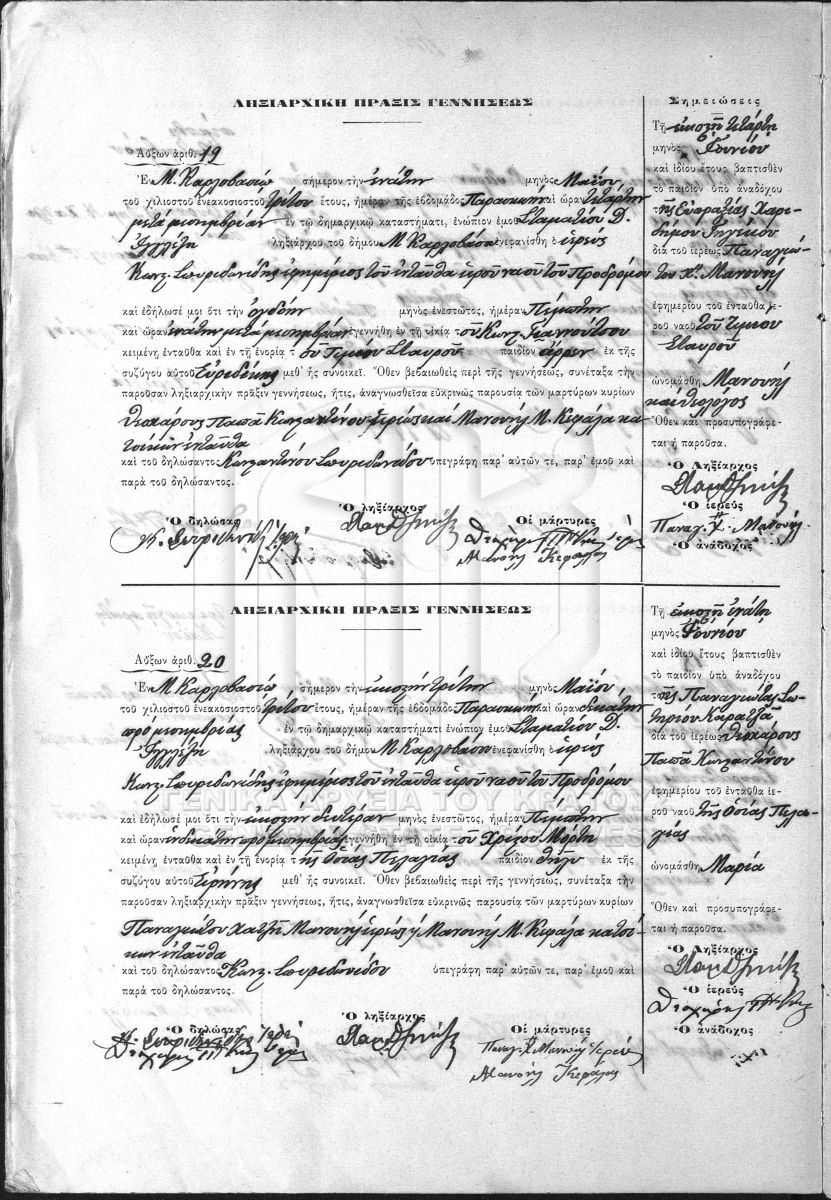 ΛΗΞΙΑΡΧΙΚΗ ΠΡΑΞΙΣ ΓΕΝΝΗΣΕΩΣ
Αὔξων ἀριθ. 19
Ἐν Μ. Καρλοβασίῳ σήμερον τὴν ἐνάτην μηνὸς Μαΐου
τοῦ χιλιοστοῦ ἐνεακοσιοστοῦ τρίτου ἔτους, ἡμέραν τῆς ἑβδομάδος Παρασκευὴν καὶ ὥραν τετάρτην
μετὰ μεσημβρίαν ἐν τῷ δημαρχικῷ καταστήματι, ἐνώπιον ἐμοῦ Σταματίου Δ.
ληξιάρχου τοῦ δήμου Μ. Καρλοβασίου ἐνεφανίσθη ὁ ἱερεὺς
Κωνσ. Σπυριδωνίδης ἐφημέριος τοῦ ἐνταῦθα ἱεροῦ ναοῦ τοῦ Προδρόμου
καὶ ἐδήλωσέ μοι ὅτι τὴν ὀγδόην μηνὸς ἐνεστῶτος, ἡμέραν Πέμπτην
καὶ ὥραν ἐνάτην μετὰ μεσημβρίαν ἐγεννήθη ἐν τῇ οἰκίᾳ τοῦ Κωνσ. Γιαννούτσου
κειμένῃ ἐνταῦθα καὶ ἐν τῇ ἐνορίᾳ τοῦ Τιμίου Σταυροῦ παιδίον ἄρρεν ἐκ τῆς
συζύγου αὐτοῦ Εὐριδίκης μεθ᾽ ἧς συνοικεῖ. Ὅθεν βεβαιωθεὶς περὶ τῆς γεννήσεως, συνέταξα τὴν
παροῦσαν ληξιαρχικὴν πρᾶξιν γεννήσεως, ἥτις, ἀναγνωσθεῖσα εὐκρινῶς παρουσίᾳ τῶν μαρτύρων κυρίων
Θεοχάρους Παπᾶ Κωνσταντίνου ἱερέως καὶ Μανουὴλ Μ. Κεφάλα κα-
τοίκων ἐνταῦθα
καὶ τοῦ δηλώσαντος Κωνσταντίνου Σπυριδωνίδου ὑπεγράφη παρ᾽ αὐτῶν τε, παρ᾽ ἐμοῦ καὶ
παρὰ τοῦ δηλώσαντος.
Ὁ δηλώσας Ὁ ληξίαρχος Οἱ μάρτυρες
Κ. Σπυριδωνίδης
Μανουὴλ Κεφάλας
Σημειώσεις
Τῇ εἰκοστῇ τετάρτῃ
μηνὸς Ἰουνίου
καὶ ἰδίου ἔτους βαπτισθὲν
τὸ παιδίον ὑπὸ ἀναδόχου
τῆς Εὐπραξίας Χαρι-
δήμου
διὰ τοῦ ἱερέως Παναγιώ-
του Χ" Μανουὴλ
ἐφημερίου τοῦ ἐνταῦθα ἱε-
ροῦ ναοῦ τοῦ Τιμίου
Σταυροῦ
ὠνομάσθη Μανουὴλ
καὶ Θεολόγος
Ὅθεν καὶ προσυπογράφε-
ται ἡ παροῦσα.
Ὁ Ληξίαρχος
Ὁ ἱερεὺς
Παναγ. Χ. Μανουὴλ
Ὁ ἀνάδοχος
ΛΗΞΙΑΡΧΙΚΗ ΠΡΑΞΙΣ ΓΕΝΝΗΣΕΩΣ
Αὔξων ἀριθ. 20
Ἐν Μ. Καρλοβασίῳ σήμερον τὴν εἰκοστὴν τρίτην μηνὸς Μαΐου
τοῦ χιλιοστοῦ ἐνεακοσιοστοῦ τρίτου ἔτους, ἡμέραν τῆς ἑβδομάδος Παρασκευὴν καὶ ὥραν δεκάτην
πρὸ μεσημβρίας ἐν τῷ δημαρχικῷ καταστήματι ἐνώπιον ἐμοῦ Σταματίου Δ.
ληξιάρχου τοῦ δήμου Μ. Καρλοβασίου ἐνεφανίσθη ὁ ἱερεὺς
Κωνσ. Σπυριδωνίδης ἐφημέριος τοῦ ἐνταῦθα ἱεροῦ ναοῦ τοῦ Προδρόμου
καὶ ἐδήλωσέ μοι ὅτι τὴν εἰκοστὴν δευτέραν μηνὸς ἐνεστῶτος, ἡμέραν Πέμπτην
καὶ ὥραν ἑνδεκάτην πρὸ μεσημβρίας ἐγεννήθη ἐν τῇ οἰκίᾳ τοῦ Χρίστου Μόρτη
κειμένῃ ἐνταῦθα καὶ ἐν τῇ ἐνορίᾳ τῆς Ὁσίας Πελαγίας παιδίον θῆλυ ἐκ τῆς
συζύγου αὐτοῦ Εἰρήνης μεθ᾽ ἧς συνοικεῖ. Ὅθεν βεβαιωθεὶς περὶ τῆς γεννήσεως, συνέταξα τὴν
παροῦσαν ληξιαρχικὴν πρᾶξιν γεννήσεως, ἥτις, ἀναγνωσθεῖσα εὐκρινῶς παρουσίᾳ τῶν μαρτύρων κυρίων
Παναγιώτου Χατζῆ Μανουὴλ ἱερέως ϗ Μανουὴλ Μ. Κεφάλα κατοί-
κων ἐνταῦθα
καὶ τοῦ δηλώσαντος Κωνσ. Σπυριδωνίδου ὑπεγράφη παρ᾽ αὐτῶν τε, παρ᾽ ἐμοῦ καὶ
παρὰ τοῦ δηλώσαντος.
Ὁ δηλώσας Ὁ ληξίαρχος Οἱ μάρτυρες
Κ. Σπυριδωνίδης ἱερεὺς
Παναγ. Χ. Μανουὴλ ἱερεύς
Μανουὴλ Κεφάλας
Τῇ εἰκοστῇ ἐνάτῃ
μηνὸς Ἰουνίου
καὶ ἰδίου ἔτους βαπτισθὲν
τὸ παιδίον ὑπὸ ἀναδόχου
τῆς Παναγιώτας Σω-
τηρίου Καρατζᾶ
διὰ τοῦ ἱερέως Θεοχάρους
Παπᾶ Κωνσταντίνου
ἐφημερίου τοῦ ἐνταῦθα ἱε-
ροῦ ναοῦ τῆς Ὁσίας Πελα-
γίας
ὠνομάσθη Μαρία
Ὅθεν καὶ προσυπογράφε-
ται ἡ παροῦσα.
Ὁ Ληξίαρχος
Ὁ ἱερεὺς
Ὁ ἀνάδοχος
ΓΕΝΙΚΑ ΑΡΧΕΙΑ ΤΟΥ ΚΡΑΤΟΥΣ